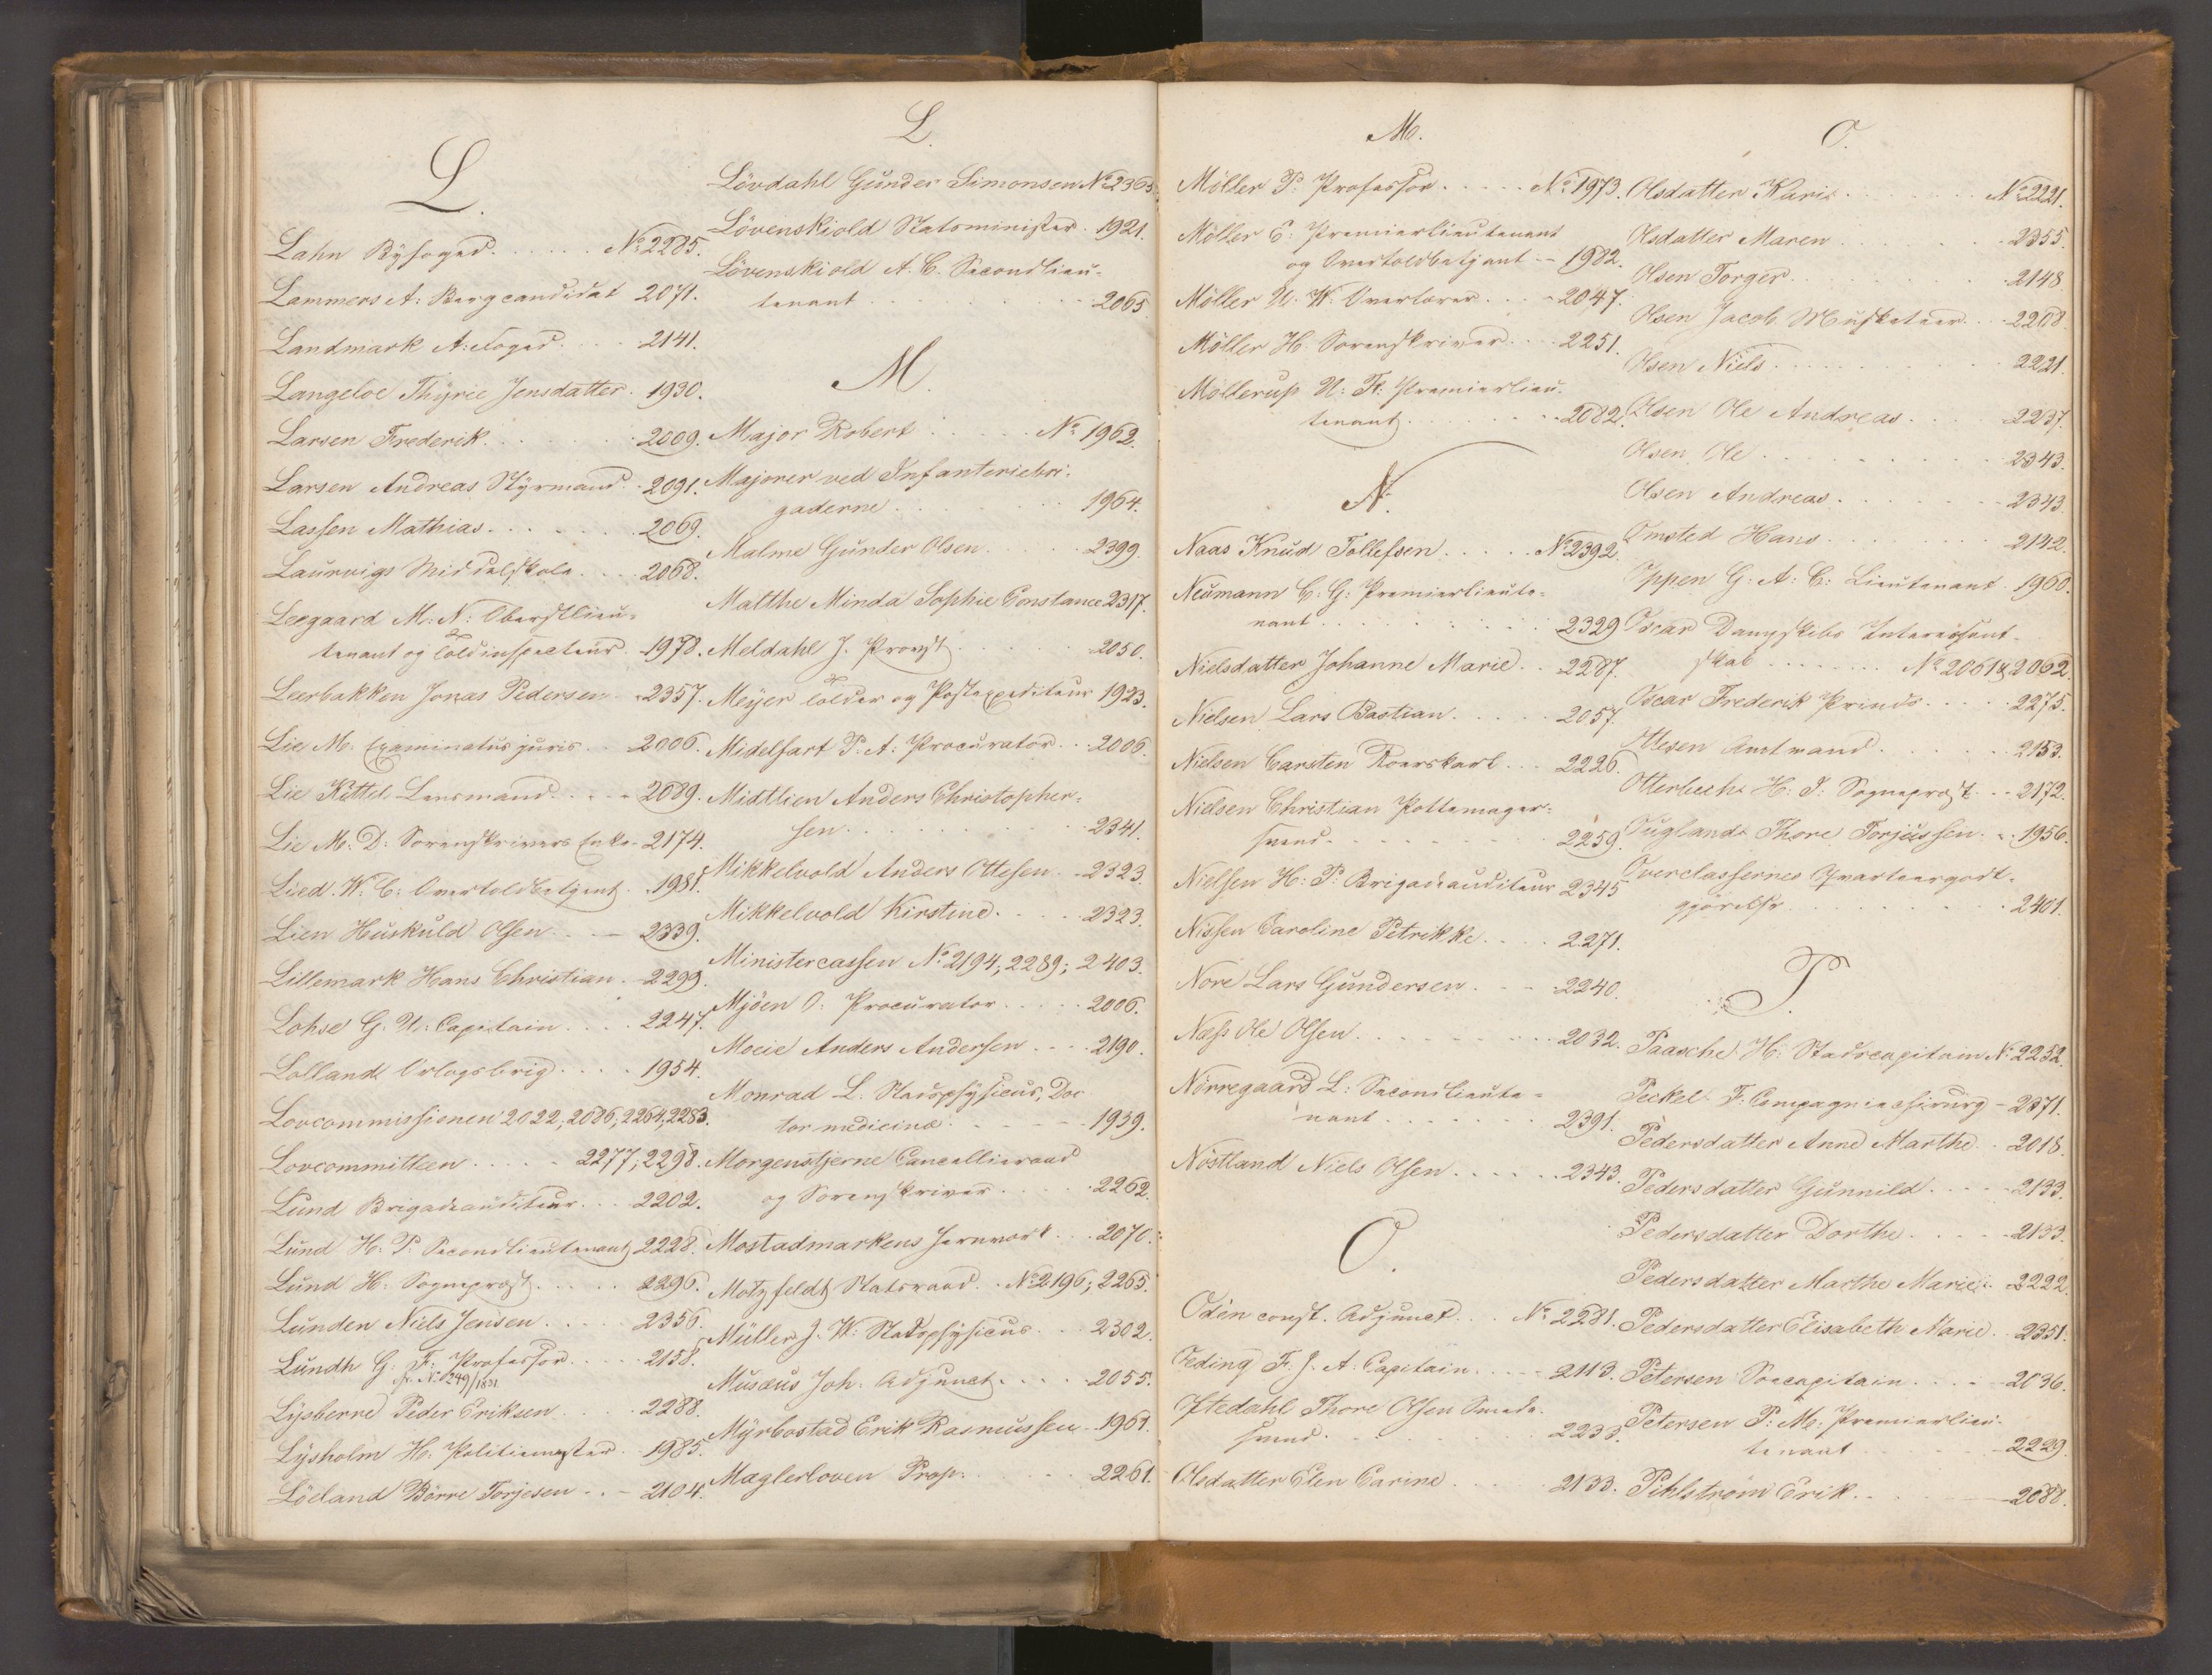 L.
Lahn Byfoged. . . . . . No 2285.
Lammers A: Bergcandidat 2071.
Landmark A: Foged. . . . 2141.
Langeloe Thyrie Jensdatter. 1930.
Larsen Frederik. . . . . . 2009.
Larsen Andreas Styrmand. . 2091.
Lassen Mathias. . . . . . 2069.
Laurvigs Middelskole. . . . 2068.
Leegaard M: N: Oberstlieu-
tenant og Toldinspecteur. . 1978.
Leerbakken Jonas Pedersen. . 2357.
Lie M: Examinatus juris. . . 2006.
Lie Kittel Lensmand. . . . 2089.
Lie M: D: Sorenskrivers Enke. 2174.
Lied. W: C: Overtoldbetjent. . 1981.
Lien Huskuld Olsen. . . 2339.
Lillemark Hans Christian. . 2299.
Lohse G: U: Capitain. . . . 2247.
Lolland Orlogsbrig. . . . 1954.
Lovcommissionen 2022, 2086, 2264, 2283.
Lovcommitteen. . . . . 2277, 2298.
Lund Brigadeauditeur. . . 2202.
Lund H: P: Secondlieutenant 2228.
Lund H: Sogneprest. . . . . 2296.
Lunden Niels Jensen. . . . 2356.
Lundh G: F: Professor. . . . . 2158.
cfr. No 249/1831
Lysberne Peder Eriksen. . . . 2288.
Lysholm H: Politiemester. . 1985.
Löeland Börre Torjesen. . . 2104.
L.
Lövdahl Gunder Simonsen No 2365.
Lövenskiold Statsminister. 1921.
Lövenskiold A. C. Secondlieu-
tenant. . . . . . . . . 2065.
M.
Major Robert. . . . . No 1962.
Majorer ved Infanteriebri-
gaderne. . . . . . . 1964.
Malme Gunder Olsen. . . . . 2399.
Malthe Minda Sophie Constance 2317.
Meldahl J. Provst. . . . . . 2050.
Meyer Tolder og Postexpediteur 1923.
Midelfart P: A: Procurator. . . 2006.
Midtlien Anders Christopher-
sen. . . . . . . . . . 2341.
Mikkelvold Anders Ottesen. . 2323.
Mikkelvold Kirstine. . . . . 2323.
Ministercassen No 2194; 2289; 2403.
Mjöen O: Procurator. . . . . 2006.
Moeie Anders Andersen. . . . 2190.
Monrad L: Stadsphysicus, Doc-
tor medicinæ. . . . . . 1939.
Morgenstjerne Cancellieraad
og Sorenskriver. . . . . 2262.
Mostadmarkens Jernværk. . . 2070.
Motzfeldt Statsraad. . No 2196; 2265.
Müller J. W: Stadsphysicus. . . 2302.
Musæus Joh. Adjunct. . . . . 2055.
Myrbostad Erik Rasmussen. . 1961.
Mæglerloven Prop: . . . . . 2261.
M.
Möller P: Professor. . . . . No 1973.
Möller E: Premierlieutenant
og Overtoldbetjent. . 1982.
Möller N: W: Overlærer. . . . 2047.
Möller H: Sorenskriver. . . . 2251.
Möllerup N: F: Premierlieu-
tenant. . . . . . . . 2082.
N.
Naas Knud Tollefsen. . . . . No 2392.
Neumann C: G: Premierlieute-
nant. . . . . . . . . 2329
Nielsdatter Johanne Marie. . 2287.
Nielsen Lars Bastian. . . . . 2057.
Nielsen Carsten Roerskarl. . . 2226.
Nielsen Christian Pottemager-
svend. . . . . . . . . 2259.
Nielsen H: P: Brigadeauditeur 2345
Nissen Caroline Petrikke. . . . 2271.
Nore Lars Gundersen. . . . 2240.
Næss Ole Olsen. . . . . . . . . 2032.
Nörregaard L: Secondlieute-
nant. . . . . . . 2391.
Nöstland Niels Olsen. . . . . . 2343.
O.
Odén const. Adjunct. . . No 2281.
Oeding F. J. A. Capitain. . . . 2113.
Oftedahl Thore Olsen Smede-
svend. . . . . . . . . 2233.
Olsdatter Elen Carine. . . . . 2133.
O.
Olsdatter Karie. . . . . . . . No 2221.
Olsdatter Maren. . . . . . . . 2355.
Olsen Torger. . . . . . . . . 2148
Olsen Jacob Musketeer. . . 2268.
Olsen Niels. . . . . . . . . . 2221.
Olsen Ole Andreas. . . . . 2237.
Olsen Ole. . . . . . . . . . 2343.
Olsen Andreas. . . . . . . 2343.
Omsted Hans. . . . . . . . . 2142.
Oppen G: A: C: Lieutenant. 1960.
Oscar Dampskibs Interessent-
skab. . . . . . . . No 2061 & 2062.
Oscar Frederik Prinds. . . . . 2275.
Ottesen Amtmand. . . . . . 2153.
Otterbech H: J: Sogneprest. . . 2172.
Ougland Thore Torjussen. . . 1956.
Overclassernes Qvarteergodt-
gjörelse. . . . . . . . . 2401.
P.
Paasche H: Stadscapitain No 2252.
Peckel F: Compagniechirurg. 2371.
Pedersdatter Anne Marthe. . 2018.
Pedersdatter Gunnild. . . . . 2133.
Pedersdatter Dorthe. . . . . . 2133.
Pedersdatter Marthe Marie. . 2222.
Pedersdatter Elisabeth Marie. . 2351.
Petersen Söecapitain. . . . . 2036.
Petersen P: M: Premierlieu-
tenant. . . . . . . . 2229.
Pihlström Erik. . . . . . . 2088.